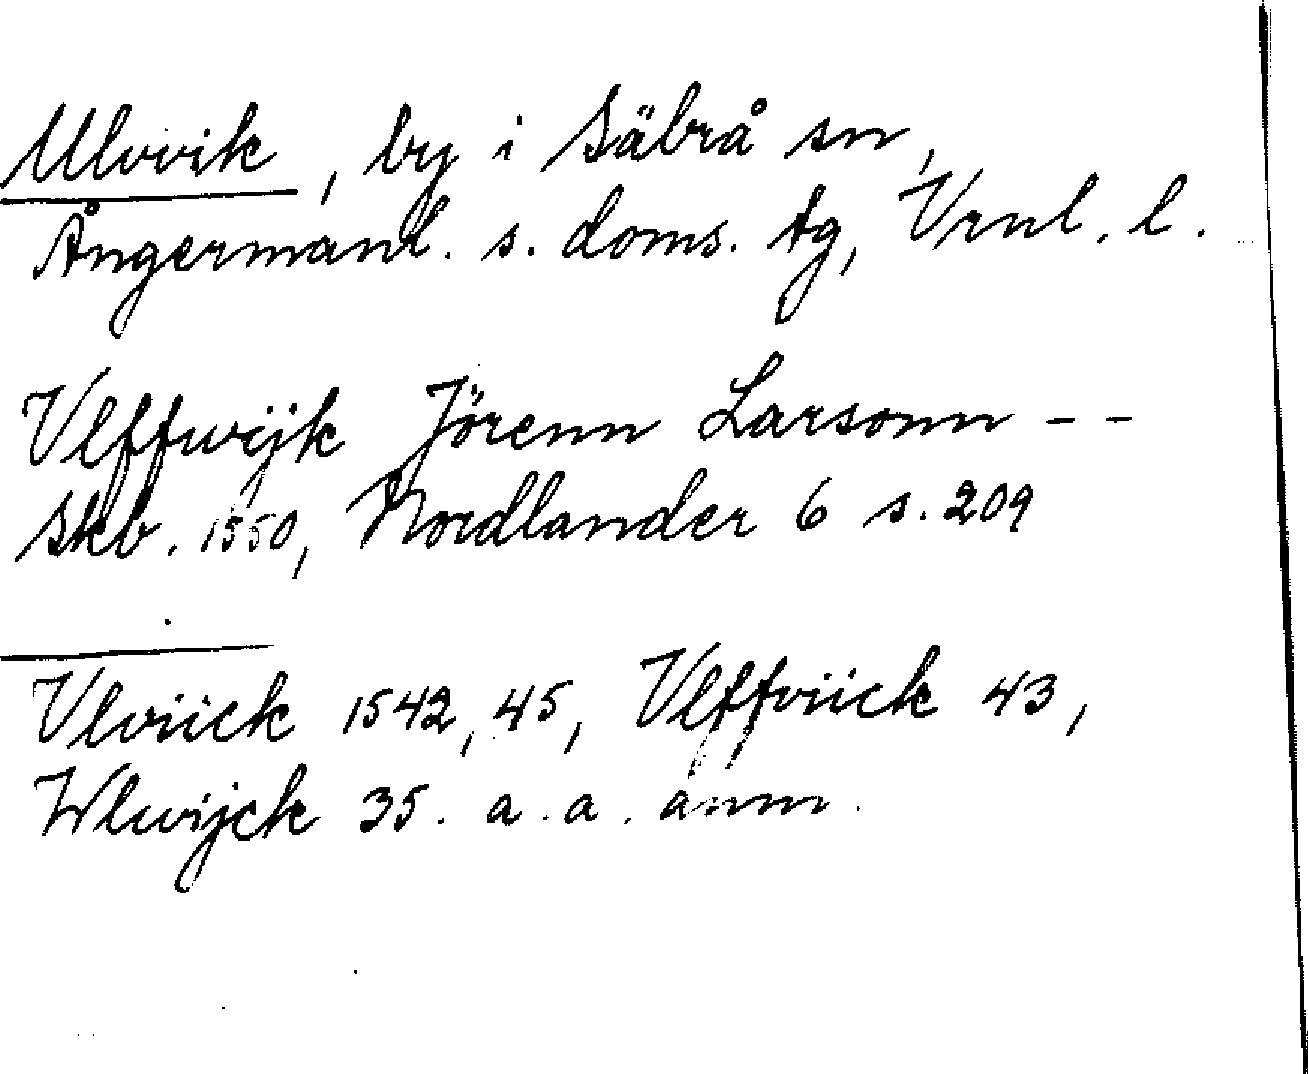 Ulvvik, by i Säbrå sn,
Ångermanl. s. doms. tg, Vrnl. l.
Vlffwijk Jörenn Larsonn - -
Skb. 1550, Nordlander 6 s. 209
Vlviick 1542, 45, Vlffviick 43,
Wlwijck 35. a. a. anm.